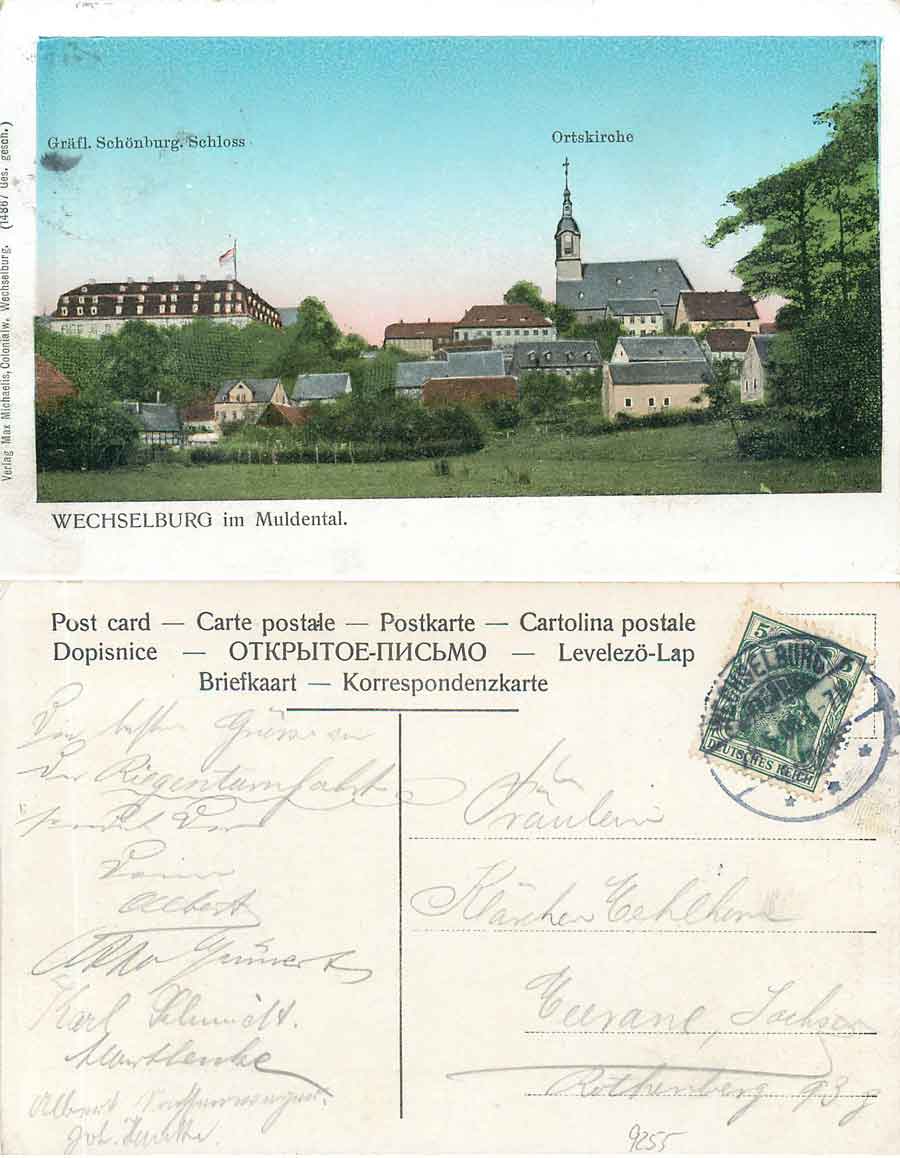 Gräfl. Schönburg. Schloss
Ortskirche
Verlag Max Michaelis, Colonialw. Wechselburg. (14867 Ges. gesch.)
WECHSELBURG im Muldental.
Post card — Carte postale — Postkarte — Cartolina postale
Dopisnice — ОТКРЫТОЕ-ПИСЬМО — Levelezö-Lap
Briefkaart — Korrespondenzkarte
5 5
DEUTSCHES REICH
WECHSELBURG
Die besten Grüsse von
der
Dein
Albert
Otto
Karl Schmidt.
Albert
Joh.
Fräulein
Klärchen
Meerane, Sachsen
Rothenberg 93
9255